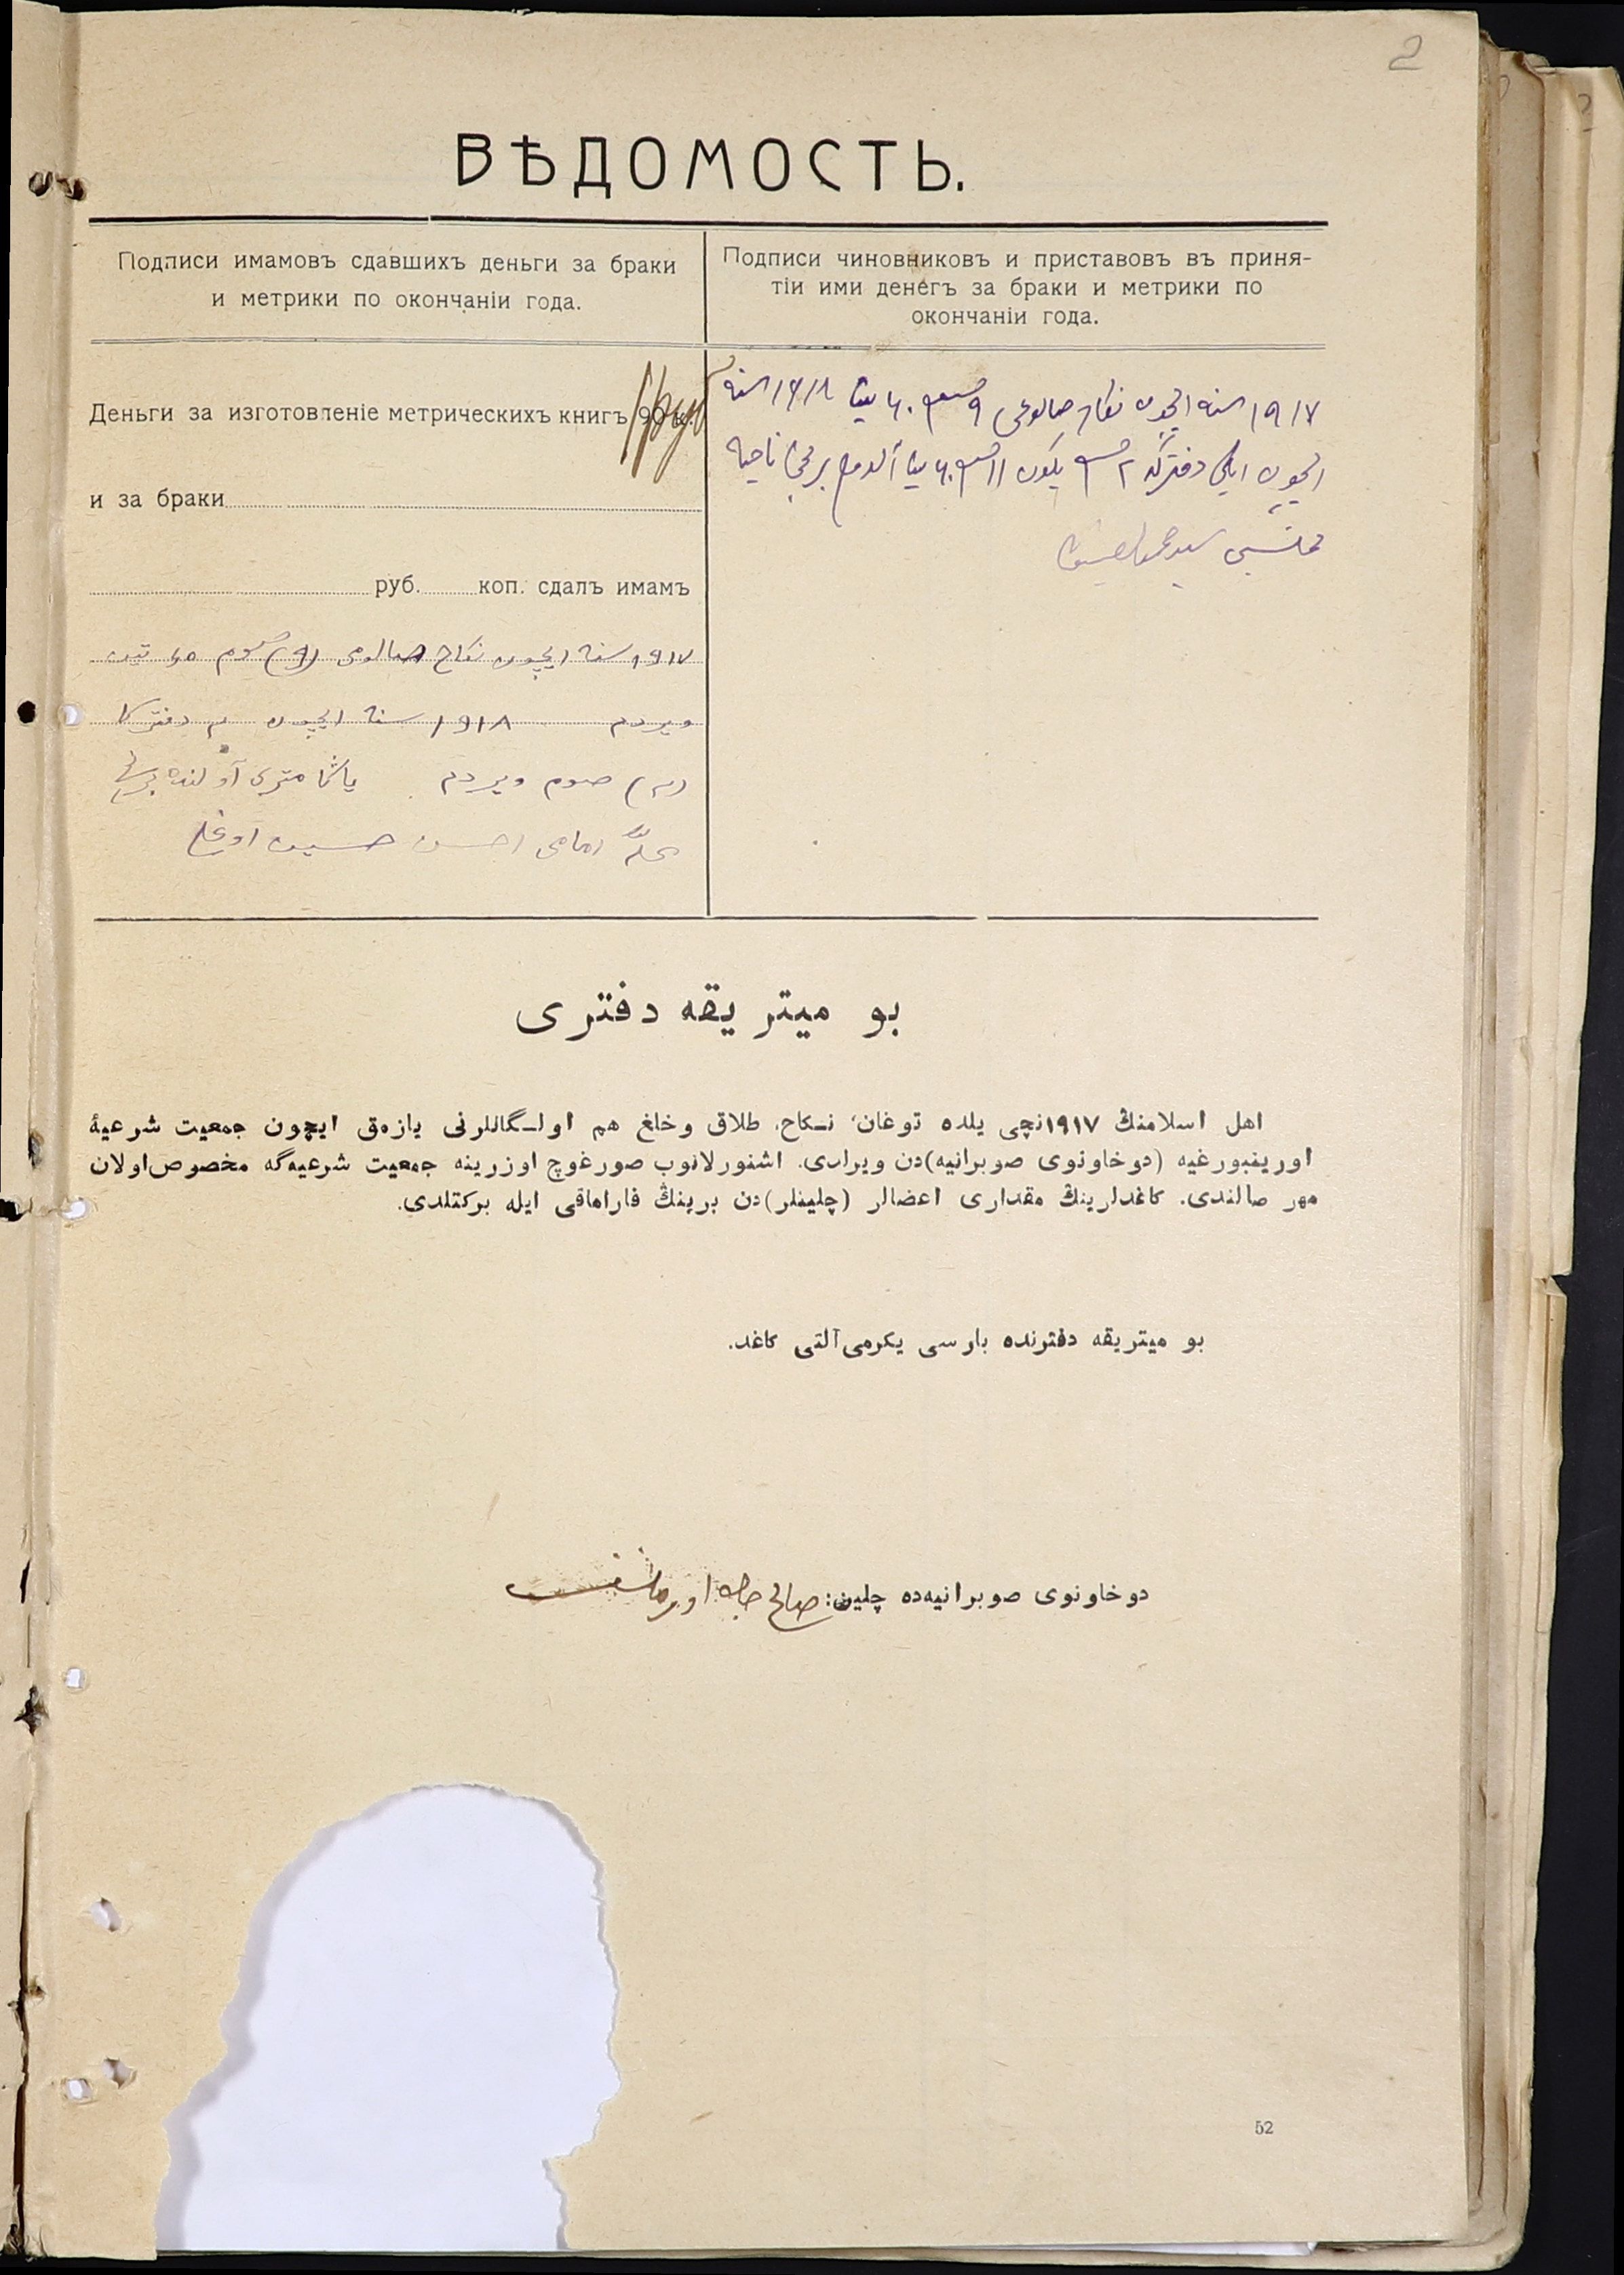 2
ВѢДОМОСТЬ.
Подписи имамовъ сдавшихъ деньги за браки
и метрики по окончаніи года.
Подписи чиновниковъ и приставовъ въ приня-
тіи ими денегъ за браки и метрики по
окончаніи года.
Деньги за изготовленіе метрическихъ книгъ 90 к.
и за браки
руб. коп. сдалъ имамъ
١٩١٧ سنه ایچون نکاح صالومی (٩) صوم ٦٠ تین
ویردم ١٩١٨ سنه ایچون ٢ دفترکا
(٢) صوم ویردم
محله امامی احسن حسین اوغلی
١٩١٧ سنه ایچون نکاح صالوغی ٩ صوم ٦٠ ١٩١٨ سنه
ایچون ایکی دفترگه ٢ صوم یکون ١١ صوم ٦٠ آلدم برنجی ناحیه
محتسبی
بو میتریقه دفتری
اهل اسلامنڭ ١٩١٧نچی یلده توغان، نـکاح، طلاق وخلغ هم اولـگانلرنی یازمق ایچون جمعیت شرعیهٔ
اورینبورغیه (دوخاونوی صوبرانیه)دن ویرلدی. اشنورلانوب صورغوچ اوزرینه جمعیت شرعیه‌گه مخصوص اولان
مهر صالندی. کاغدلرینڭ مقداری اعضالر (چلینلر)دن برینڭ قاراماقی ایله برکتلدی.
بو میتریقه دفترنده بارسی یکرمی آلتی کاغد.
دوخاونوی صوبرانیه‌ده چلین:
52